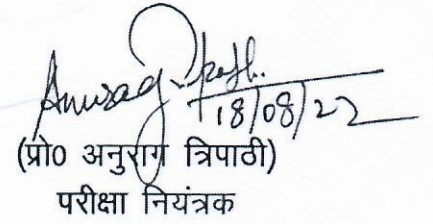 Anurag Tripathi
18/08/22
(प्रो0 अनुराग त्रिपाठी)
परीक्षा नियंत्रक